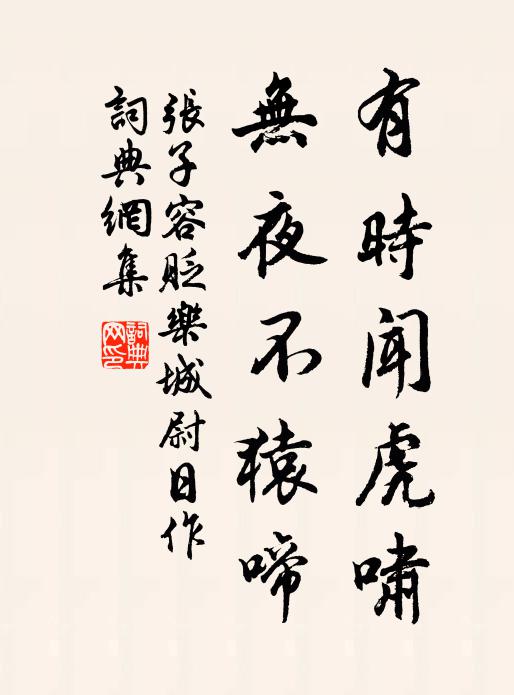 有時聞虎嘯
無夜不猿啼
張子容貶樂城尉日作
詞典網集
詞典网印